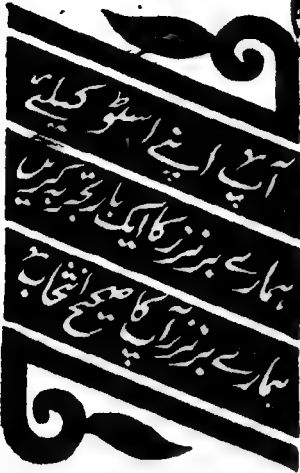 آپ اپنے اسٹو کیلئے
ہمارے برنرز کا ایک بار تجربہ کریں
ہمارے برنرز آپ کا صحیح انتخاب